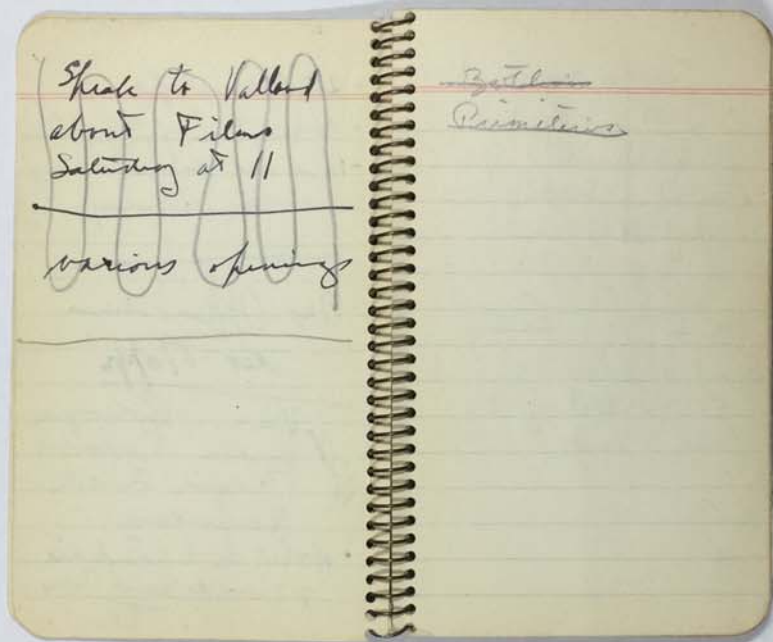 Speak to Valland
about Films
Saturday at 11
various openings
Primitives